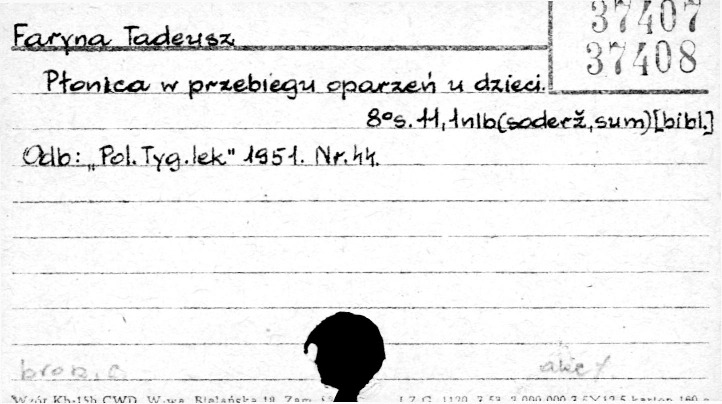 37407
37408
Faryna Tadeusz
Płonica w przebiegu oparzeń u dzieci.
8° s. 11, 1nlb (soderž, sum) [bibl.]
Odb: „Pol. Tyg. lek" 1951. Nr. 44.
Wzór Kb-15b CWD, W-wa, Bielańska 18 Zam.
LZG. 1120 7.53 2.000.000 7,5X12,5 karton 160